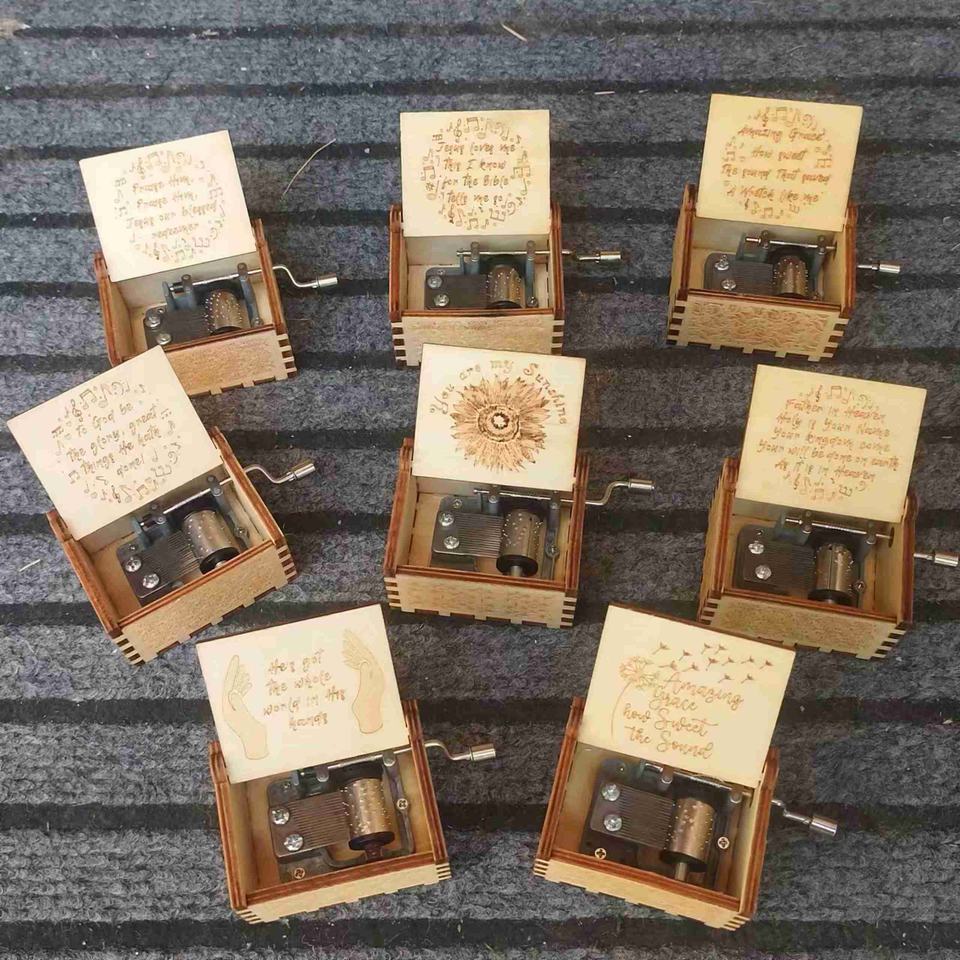 Praise Him,
Praise Him,
Jesus our blessed
redeemer
Jesus loves me
this I know
for the Bible
tells me so
Amazing Grace
How sweet
The sound That saved
A Wretch like me
To God be
the glory, great
things He hath
done!
You are my Sunshine
Father in Heaven
Holy is Your Name
Your kingdom come
Your will be done on earth
As it is in Heaven
He's got
the whole
world in His
hands
Amazing
Grace
how Sweet
the Sound